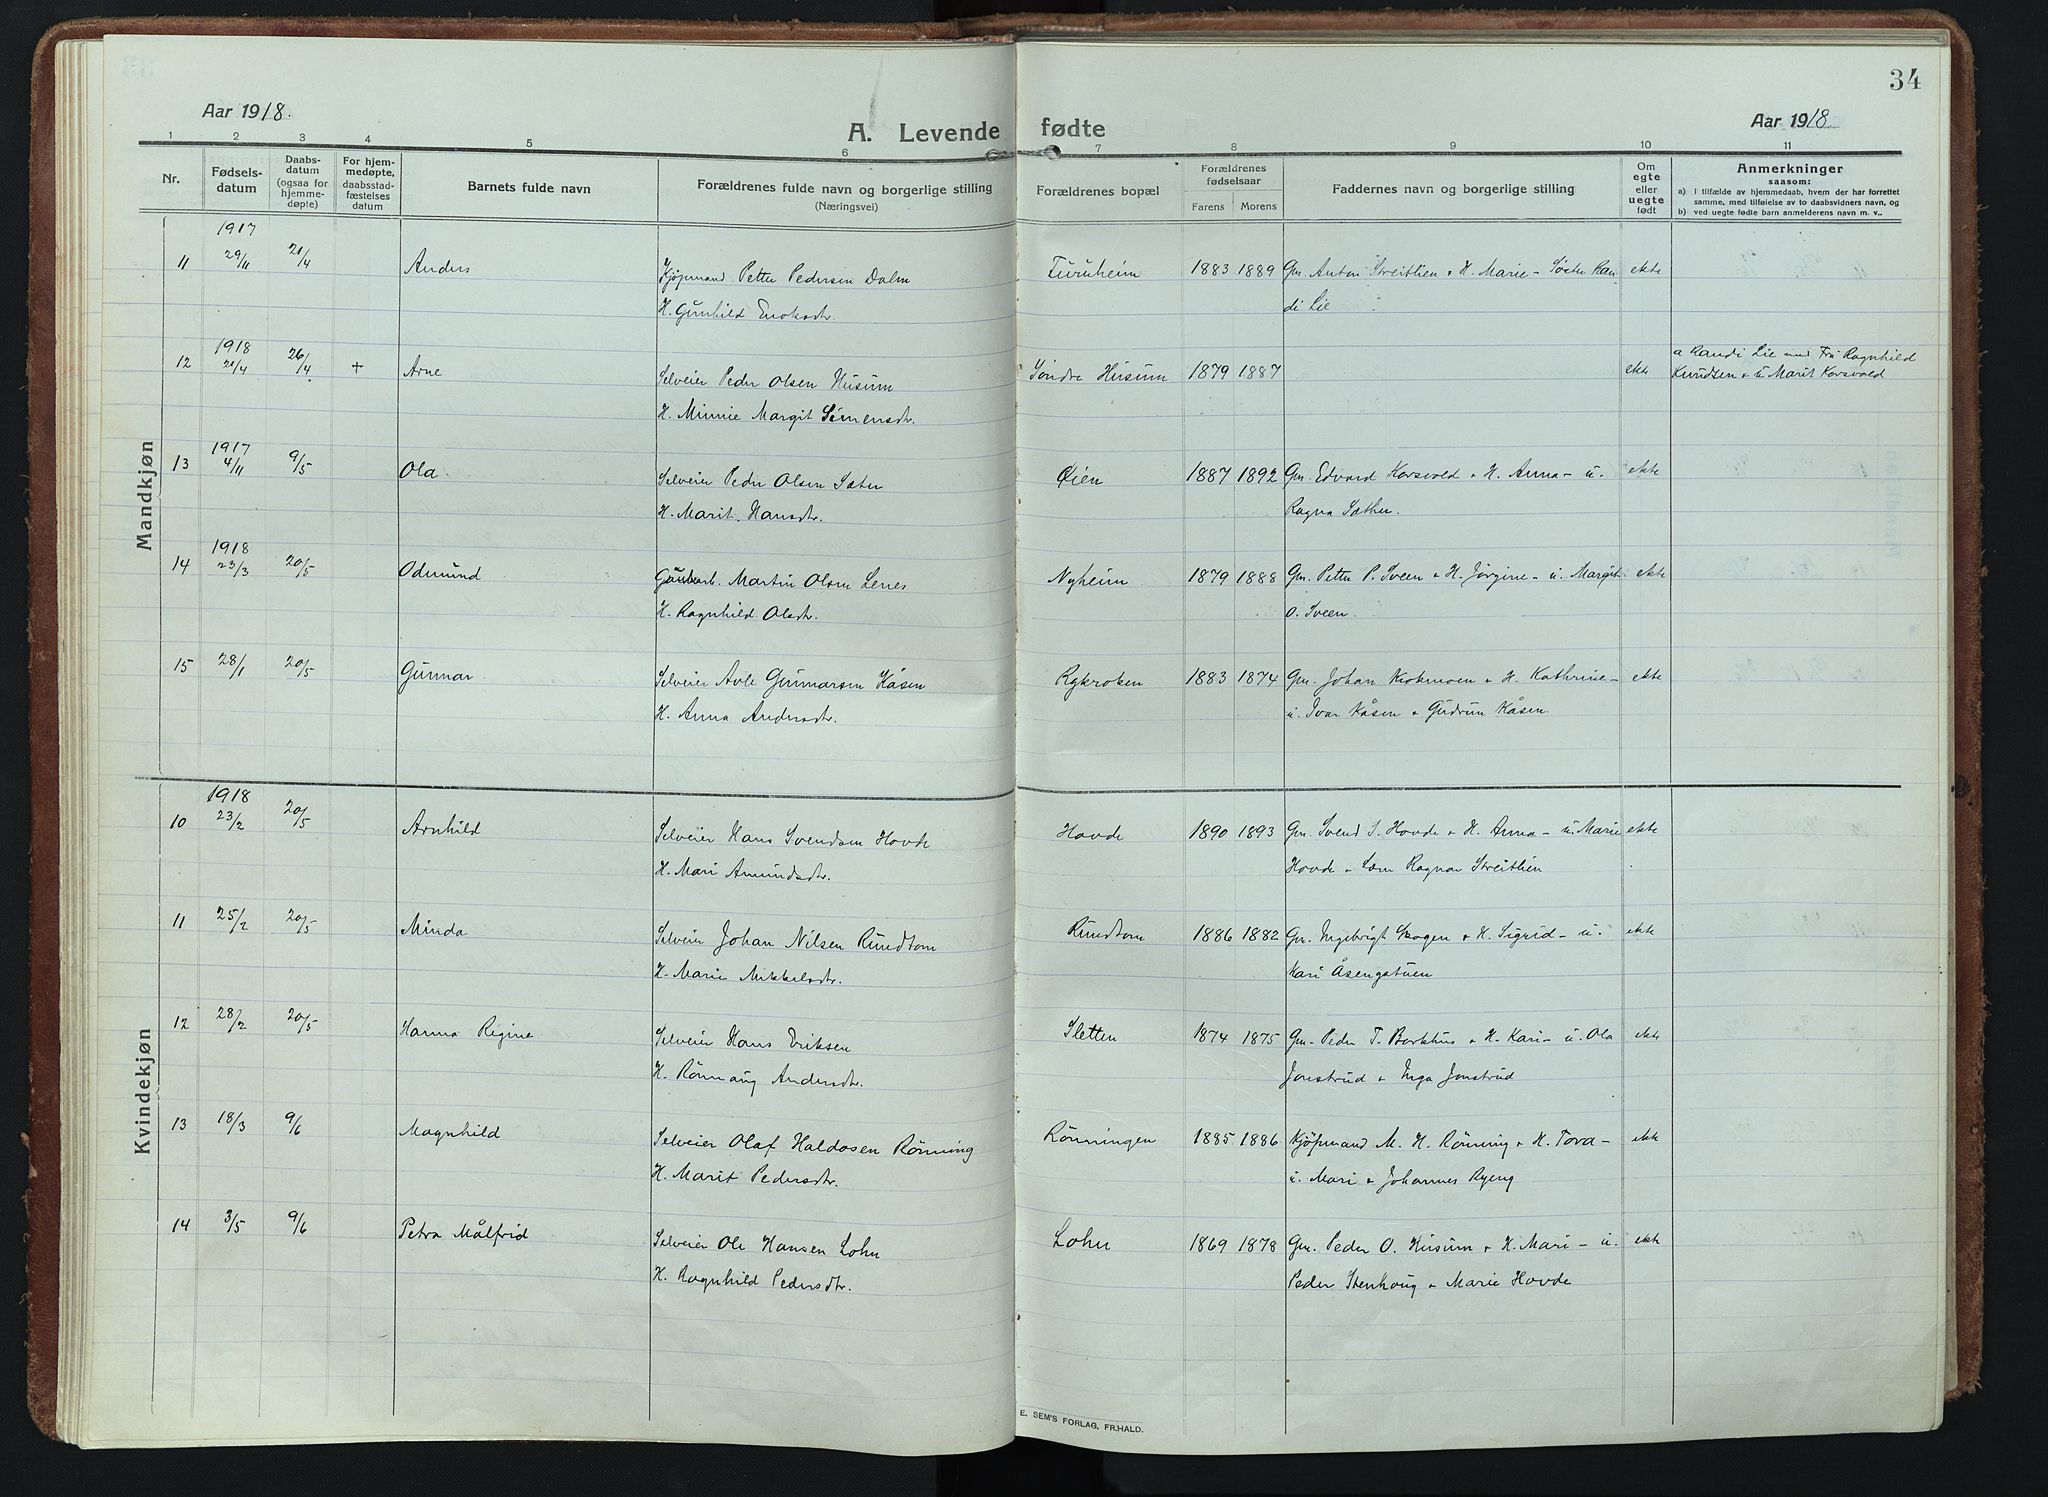 34
Aar 1918.
A. Levende fødte
Aar 1918
1 2 3 4 5 6 7 8 9 10 11
Nr.
Fødsels-
datum
Daabs-
datum
(ogsaa for
hjemme-
døpte)
For hjem-
medøpte,
daabsstad-
fæstelses
datum
Barnets fulde navn
Forældrenes fulde navn og borgerlige stilling
(Næringsvei)
Forældrenes bopæl
Forældrenes
fødselsaar
Farens Morens
Faddernes navn og borgerlige stilling
Om
egte
eller
uegte
født
Anmerkninger
saasom:
a) i tilfælde av hjemmedaab, hvem der har forrettet
samme, med tilføielse av to daabsvidners navn, og
b) ved uegte fødte barn anmelderens navn m. v..
Mandkjøn
1917
11 29/11 21/4 Anders Kjøpmand Petter Pedersen Dalm Furuheim 1883 1889 Gm. Anton Streitlien + H. Marie - Søster Ran ekte
H. Gunhild Enoksdtr. di Lie
1918
12 21/4 26/4 + Arne Selveier Peder Olsen Husum Søndre Husum 1879 1887 ekte a Randi Lie med Fru Ragnhild
H. Minnie Margit Simensdtr. Knudsen + u Marit Korsvold
1917
13 4/11 9/5 Ola Selveier Peder Olsen Sæter Øien 1887 1892 Gm. Edvard Korsvold + H. Anna - u. ekte
H. Marit Hansdtr. Ragna Sæther.
1918
14 23/3 20/5 Odmund Martin Olsen Lenes Nyheim 1879 1888 Gm. Petter P. Sveen + H. Jørgine - u. Margit ekte
H. Ragnhild Olsdtr. O. Sveen
15 28/1 20/5 Gunnar Selveier Avle Gunnarsen Kåsen Rykroken 1883 1874 Gm. Johan Krokmoen + H. Kathrine - ekte
H. Anna Andersdtr. u. Ivar Kåsen + Gudrun Kåsen.
Kvindekjøn
1918
10 23/2 20/5 Arnhild Selveier Hans Svendsen Hovde Hovde 1890 1893 Gm. Svend S. Hovde + H. Anna - u. Marie ekte
H. Mari Amundsdtr. Hovde + Ragnar Streitlien
11 25/2 20/5 Minda Selveier Johan Nilsen Rundtom Rundtom 1886 1882 Gm. Ingebrigt Skogen + H. Sigrid - u. ekte
H. Marie Mikkelsdtr. Kari Åsengstuen
12 28/2 20/5 Hanna Regine Selveier Hans Eriksen Sletten 1874 1875 Gm. Peder T. Borkhus + H. Kari - u. Ola ekte
H. Rønnaug Andersdtr. Jonstrud + Inga Jonstrud
13 18/3 9/6 Magnhild Selveier Olaf Haldosen Rønning Rønningen 1885 1886 Kjøpmand M. H. Rønning + H. Tora - ekte
H. Marit Pedersdtr. u. Mari + Johannes Ryeng
14 3/5 9/6 Petra Målfrid Selveier Ole Hansen Lohn Lohn 1869 1878 Gm. Peder O. Husum + H. Mari - u. ekte
H. Ragnhild Pedersdtr. Peder Stenhaug + Marie Hovde
E. SEM'S FORLAG. FR.HALD.